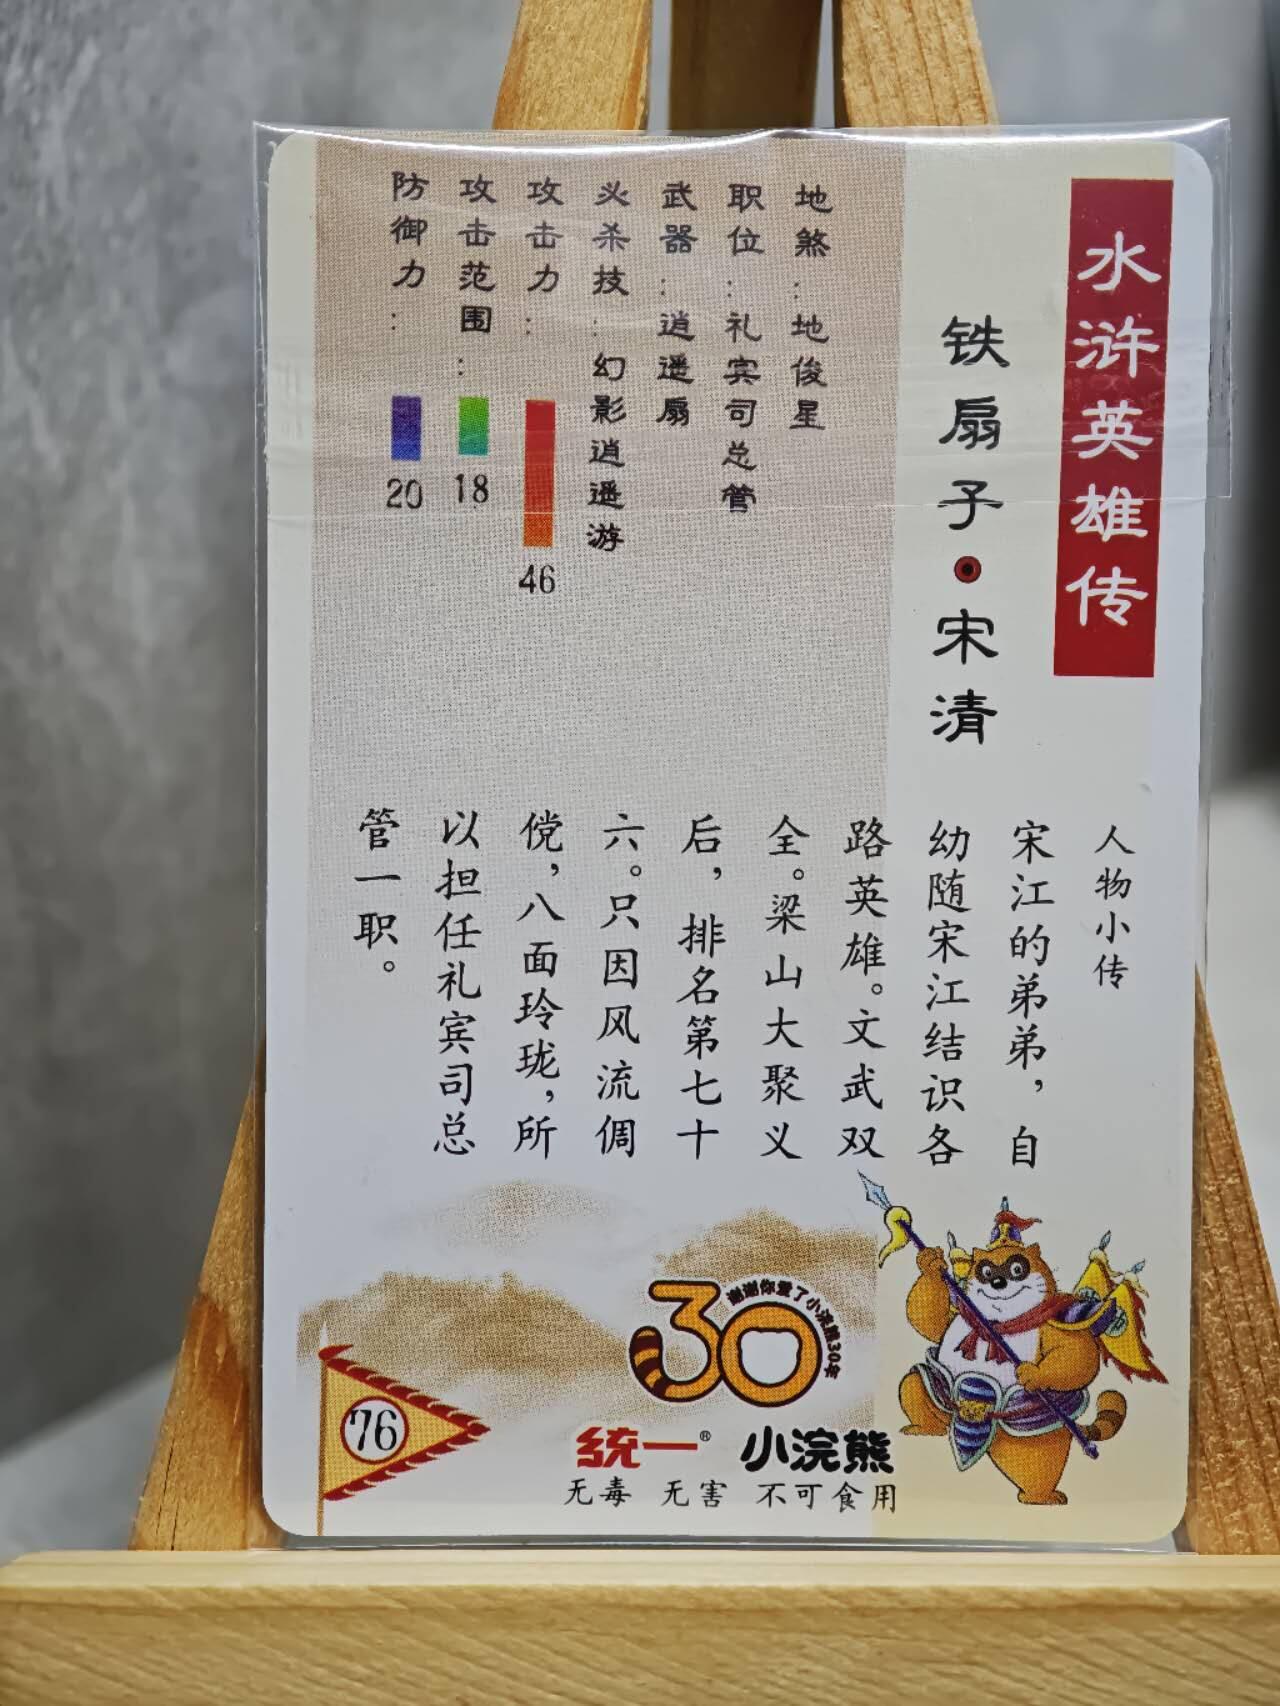 水浒英雄传
铁扇子·宋清
地煞：地俊星
职位：礼宾司总管
武器：逍遥扇
必杀技：幻影逍遥游
攻击力：
46
攻击范围：
18
防御力：
20
人物小传
宋江的弟弟，自
幼随宋江结识各
路英雄。文武双
全。梁山大聚义
后，排名第七十
六。只因风流倜
傥，八面玲珑，所
以担任礼宾司总
管一职。
76
30
谢谢你爱了小浣熊30年
统一® 小浣熊
无毒 无害 不可食用